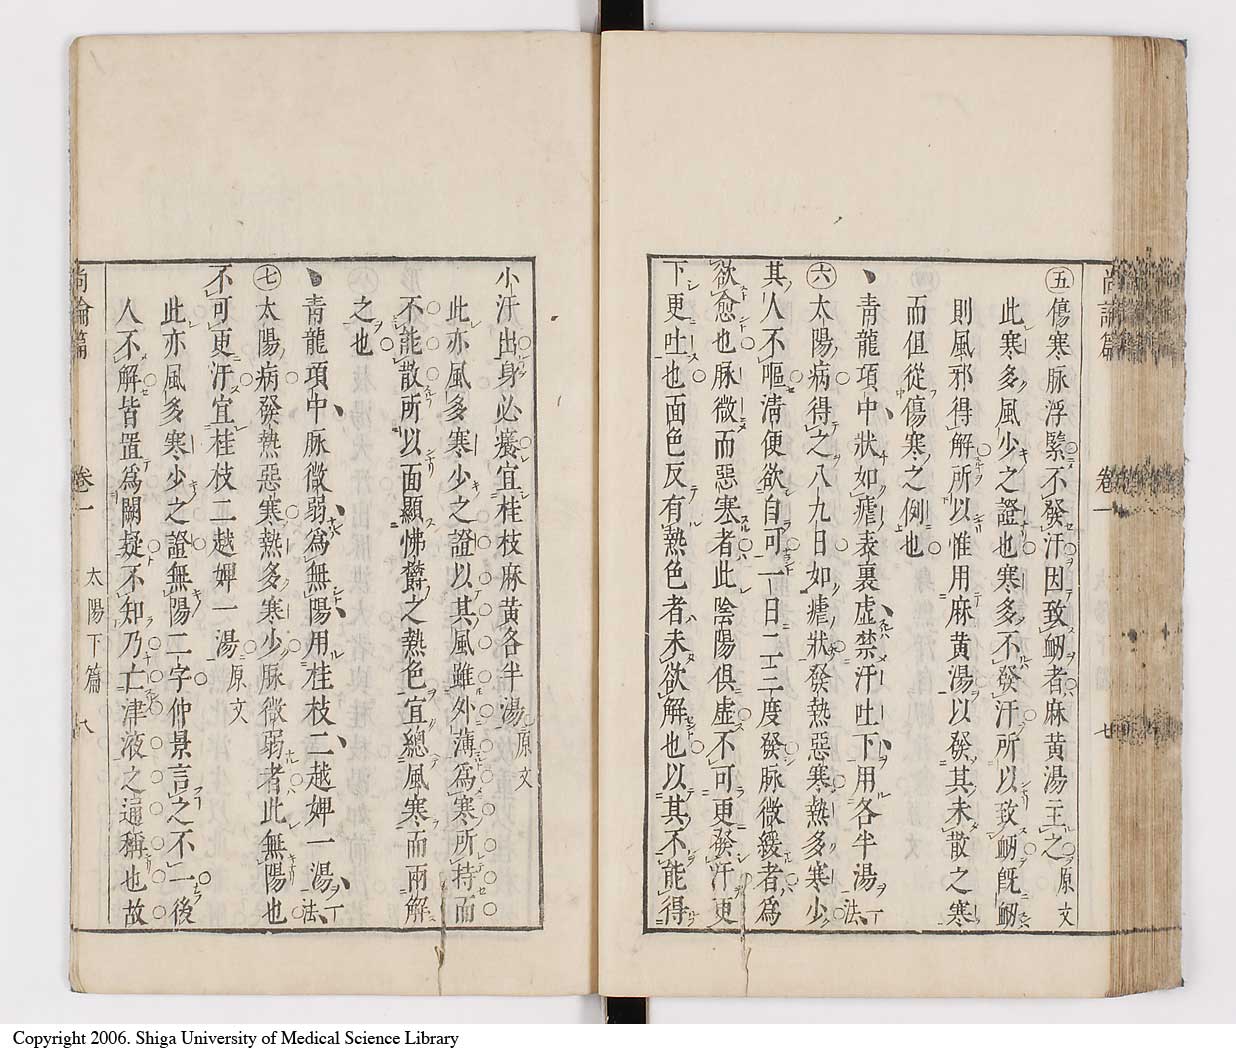 尚論篇 卷一 七
㊄傷寒脉浮緊不發汗因致衂者麻黄湯主之原文
此寒多風少之證也寒多不發汗所以致衂既衂
則風邪得解所以惟用麻黄湯以發其未散之寒
而但從傷寒之例也
青龍項中狀如瘧表裏虚禁汗吐下用各半湯一法
㊅太陽病得之八九日如瘧狀發熱惡寒熱多寒少
其人不嘔淸便欲自可一日二三度發脉微緩者爲
欲愈也脉微而惡寒者此陰陽俱虚不可更發汗更
下更吐也面色反有熱色者未欲解也以其不能得
小汗出身必癢宜桂枝麻黄各半湯原文
此亦風多寒少之證以其風雖外薄爲寒所持而
不能散所以面顯怫欝之熱色宜總風寒而兩解
之也
青龍項中脉微弱爲無陽用桂枝二越婢一湯一法
㊆太陽病發熱惡寒熱多寒少脉微弱者此無陽也
不可更汗宜桂枝二越婢一湯原文
此亦風多寒少之證無陽二字仲景言之不一後
人不解皆置爲闕疑不知乃亡津液之通稱也故
尚論篇 卷一 太陽下篇 八
Copyright 2006. Shiga University of Medical Science Library